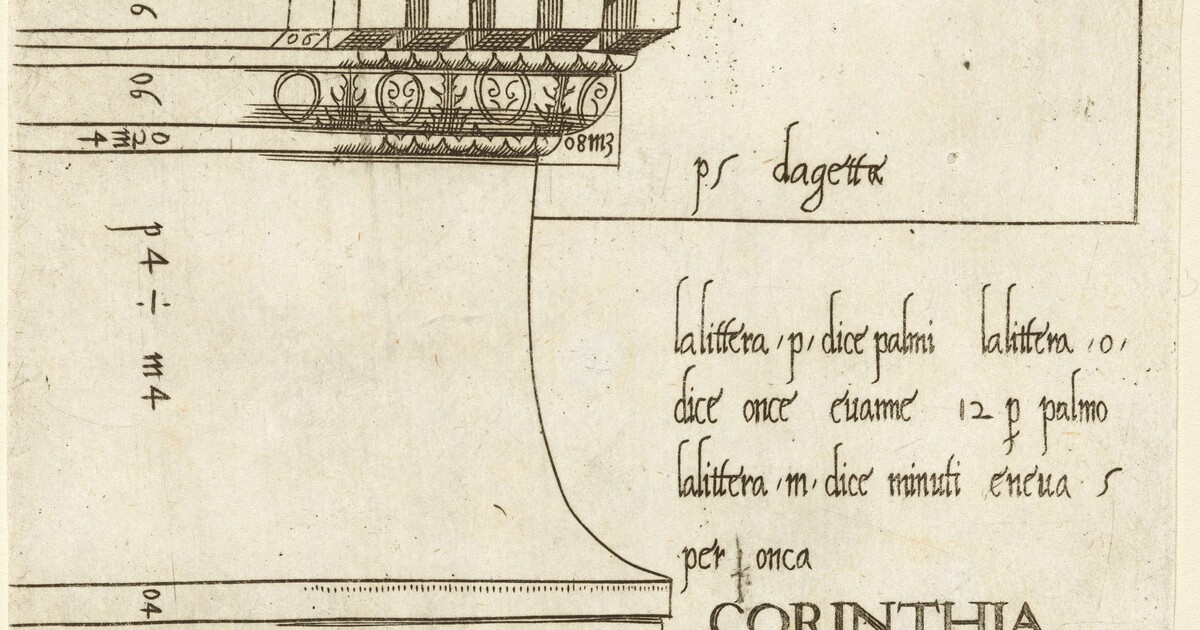 6
06
06
0 2/m 4
08m3
p5 dagette
p4 ÷ m4
lalittera · p · dice palmi lalittera · o ·
dice once evanne 12 p palmo
lalittera · m · dice minuti eneva 5
per onca
04
CORINTHIA